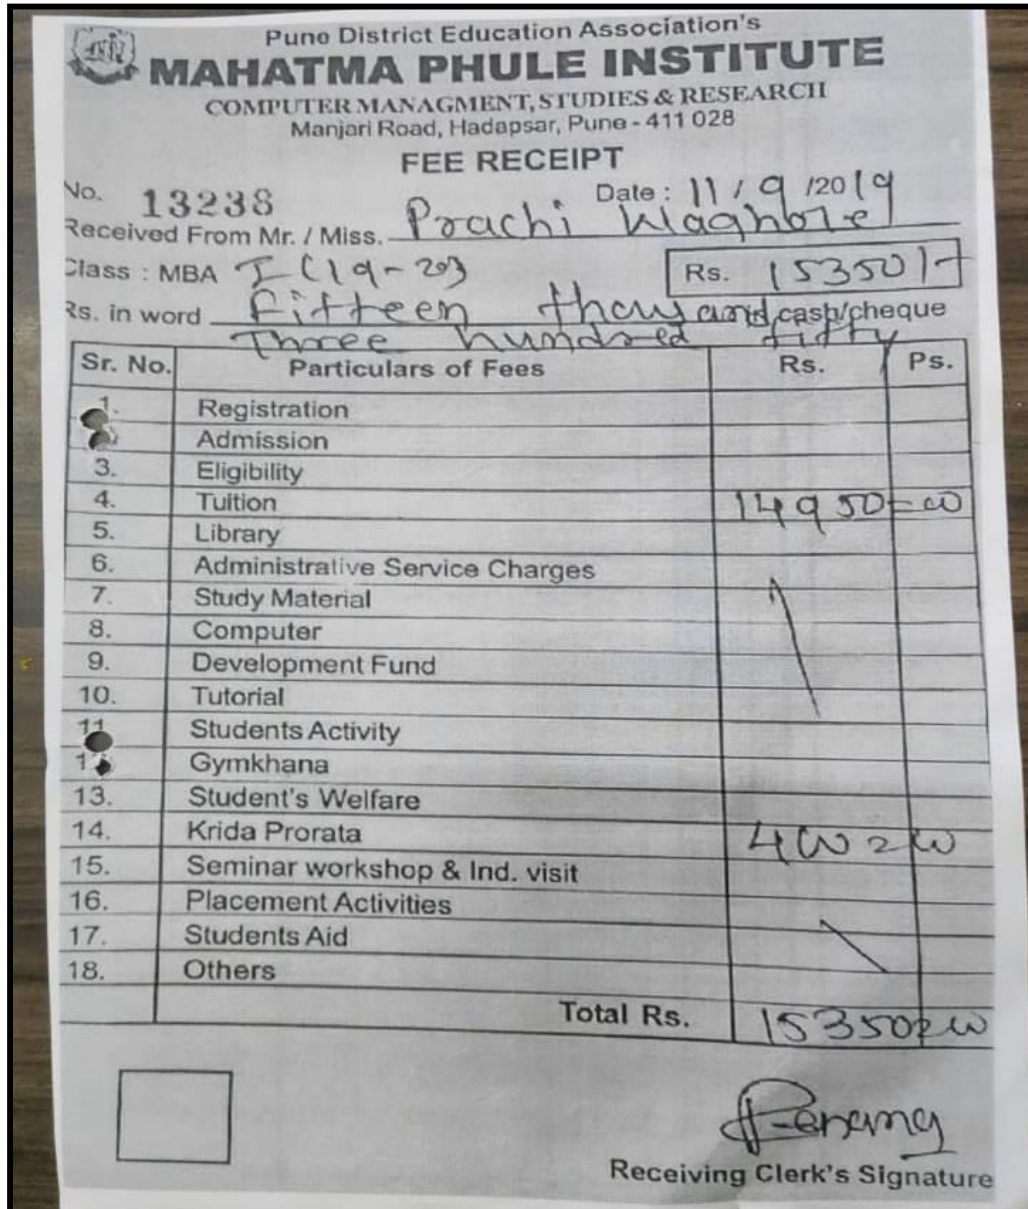 Pune District Education Association's
MAHATMA PHULE INSTITUTE
COMPUTER MANAGMENT, STUDIES & RESEARCH
Manjari Road, Hadapsar, Pune - 411 028
FEE RECEIPT
No. 13238 Date : 11 / 9 /2019
Received From Mr. / Miss. Prachi Waghole
Class : MBA I (19-20) Rs. 15350/-
Rs. in word Fifteen thousand cash/cheque
Three hundred fifty
Sr. No. Particulars of Fees Rs. Ps.
1. Registration
Admission
3. Eligibility
4. Tuition 14950=00
5. Library
6. Administrative Service Charges
7. Study Material
8. Computer
9. Development Fund
10. Tutorial
11 Students Activity
1 Gymkhana
13. Student's Welfare
14. Krida Prorata 400=00
15. Seminar workshop & Ind. visit
16. Placement Activities
17. Students Aid
18. Others
Total Rs. 15350=00
Receiving Clerk's Signature